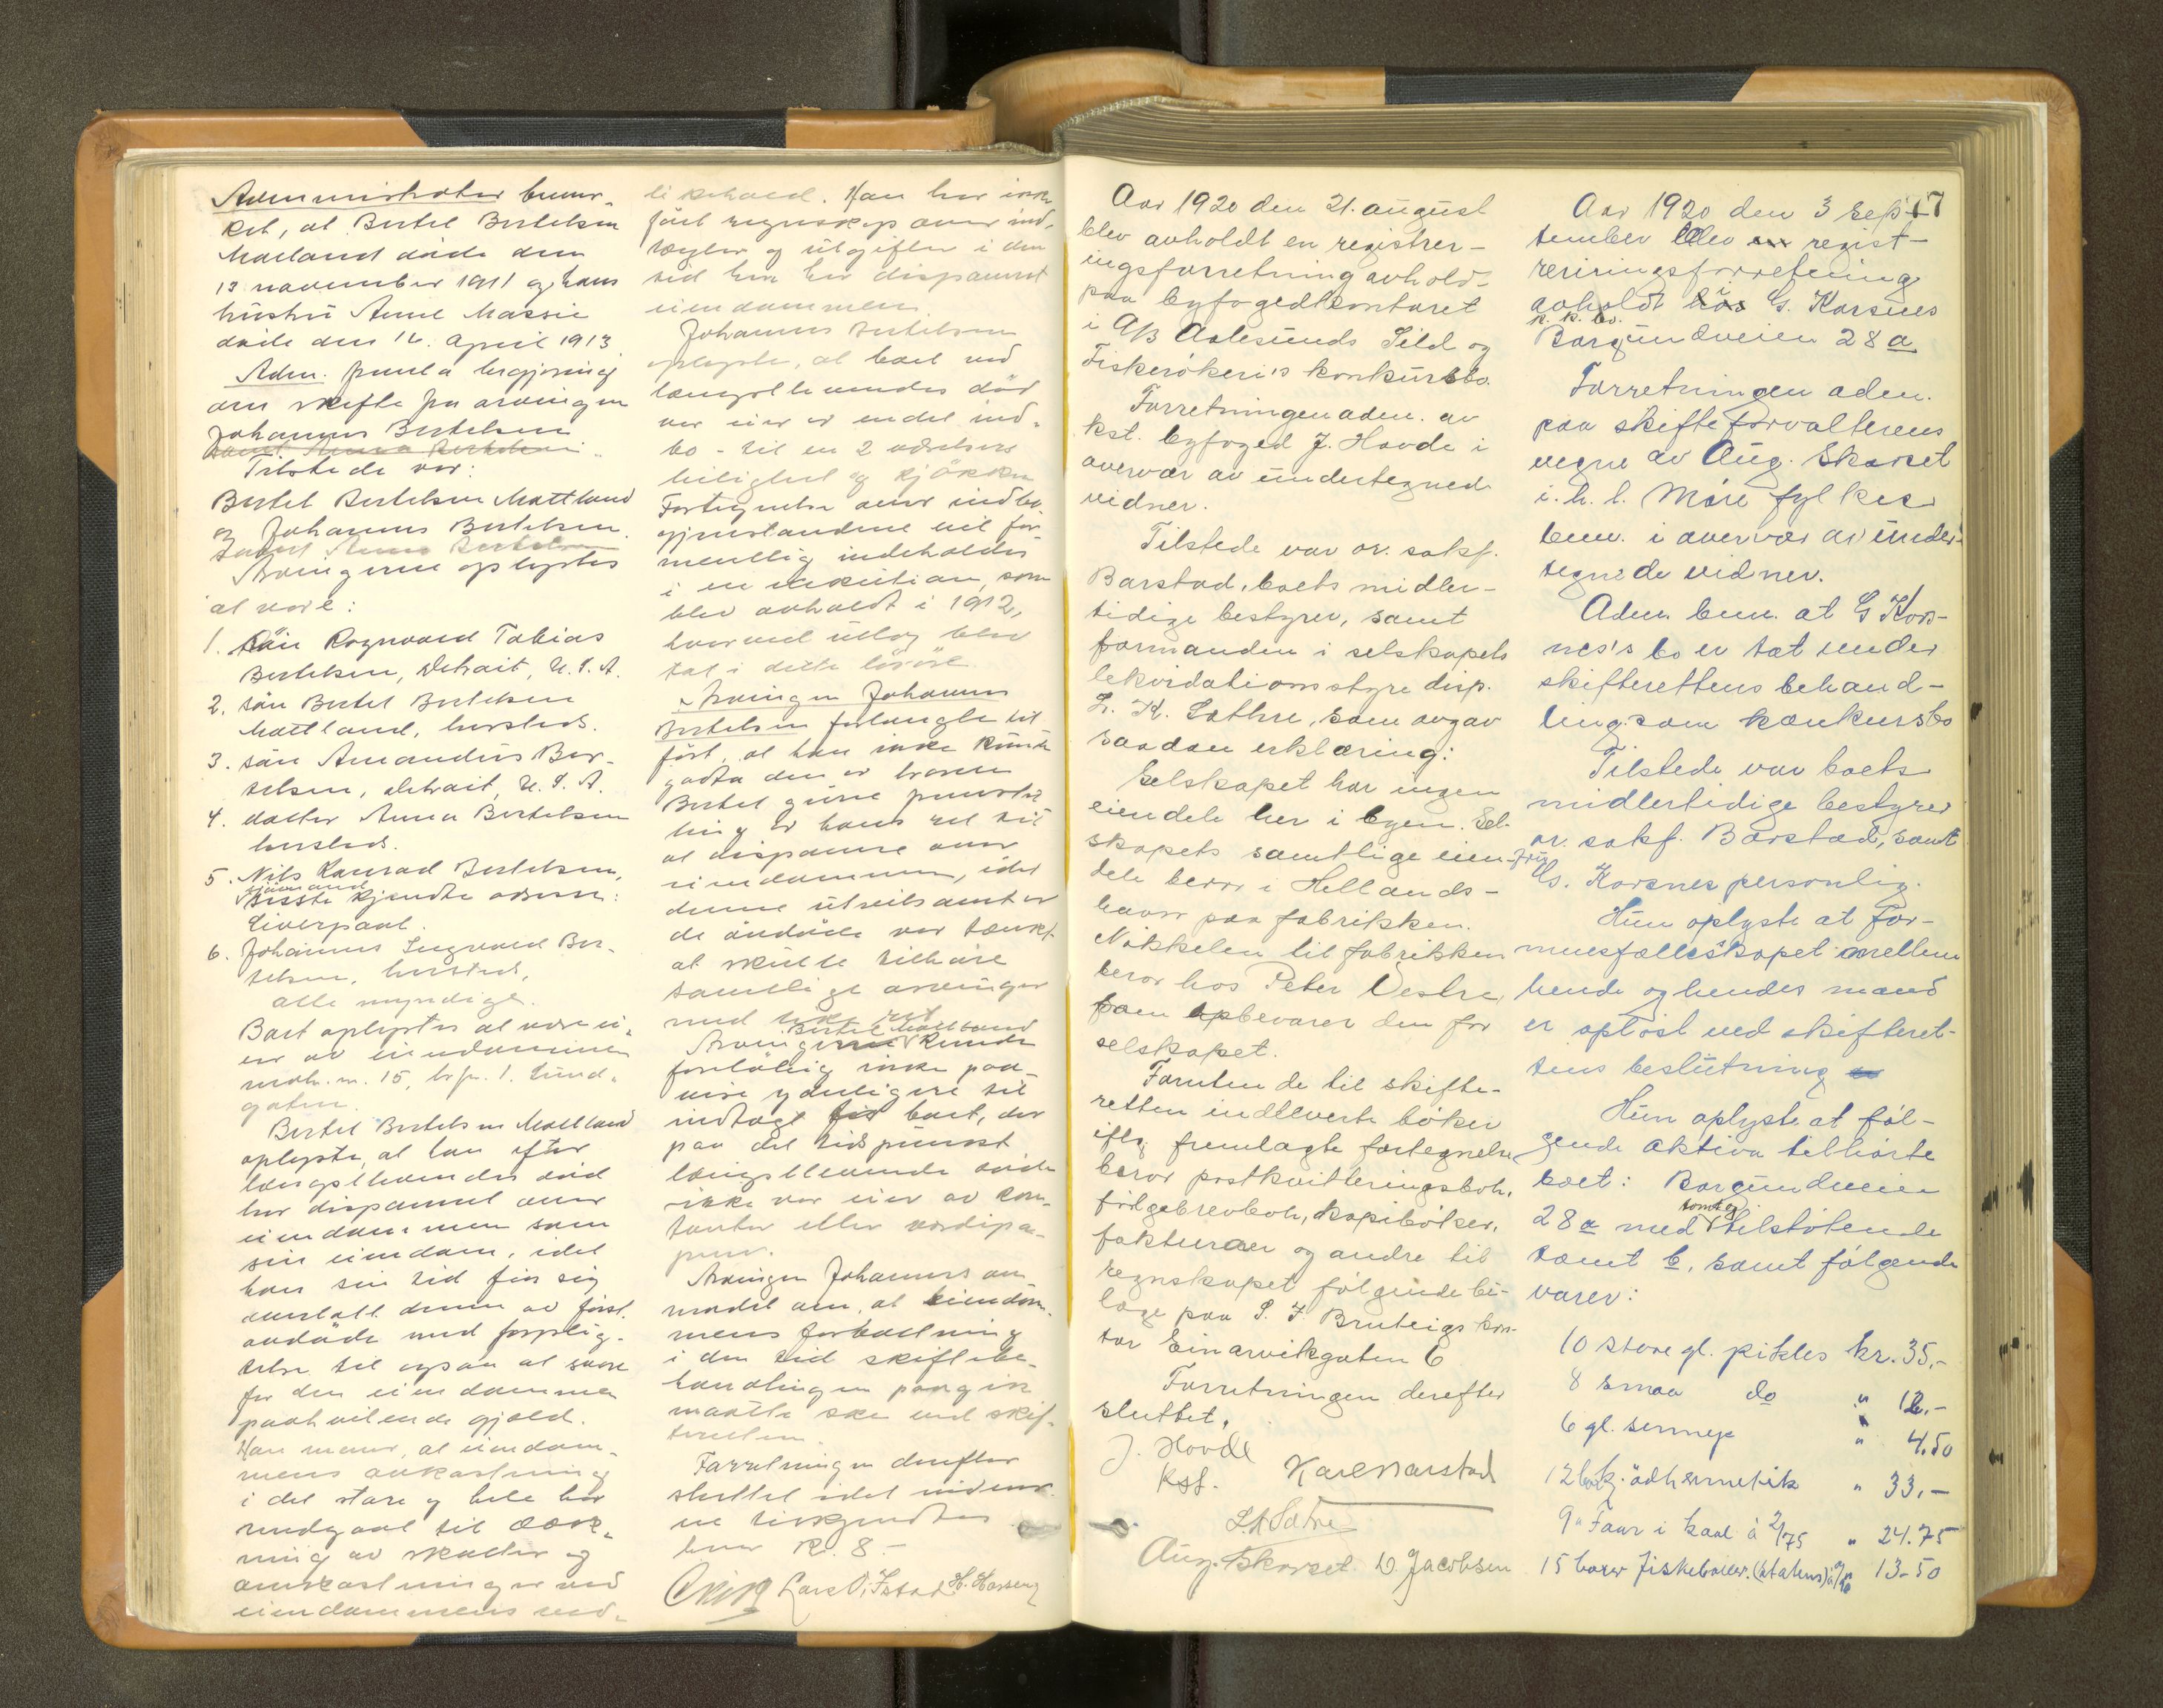 Administrator bemer-
ket, at Bertel Bertelsen
Matland døde den
13 november 1911 og hans
hustru Anne Massie
døde den 16. april 1913
Adm. begjæring
om skifte fra arvingen
Johannes Bertelsen
samt Anna Bertelsen
Tilstede var:
Bertel Bertelsen Mattland
og Johannes Bertelsen.
samt Anna Bertelsen
Arvingerne oplystes
at være:
1. Søn Rognvald Tobias
Bertelsen, Detroit, U.S.A.
2. søn Bertel Bertelsen
Mattland, hersteds.
3. søn Amandus Ber-
telsen, Detroit, U.S.A.
4. datter Anna Bertelsen
hersteds.
5. Nils Konrad Bertelsen,
sjømand
Sidste kjendte adresse:
Liverpool.
6. Johannes Ingvald Ber-
telsen, hersteds,
alle myndige.
Boet oplystes at være ei-
er av eiendommen
matr. nr. 15, 1. Sund-
gaten.
Bertel Bertelsen Mattland
oplyste, at han efter
længstlevendes død
har disponert over
eiendommen som
sin eiendom, idet
han sin tid fik sig
overlatt denne av først
avdøde med forplig-
telse til ogsaa at svare
for den eiendommen
paahvilende gjæld.
Han mener, at eiendom-
mens avkastning
i det store og hele har
medgaat til dæk-
ning av skatter og
omkostninger ved
eiendommens ved-
likehold. Han har ikke
ført regnskap over ind-
tægter og utgifter i den
tid han har disponert
eiendommen
Johannes Bertelsen
oplyste, at boet ved
længstlevendes død
var eier av endel ind-
bo - til en 2 værelsers
leilighet og kjøkken
Fortegnelse over indbo-
gjenstandene vil for-
mentlig indeholdes
i en eksekution, som
blev avholdt i 1912,
hvorved utlæg blev
tat i dette løsøre
Arvingen Johannes
Bertelsen forlangte til-
ført, at han ikke kunde
godta den av broren
Bertel givne fremstil-
ling av hans ret til
at disponere over
eiendommen, idet
denne utvilsomt av
de avdøde var tænkt
at skulle tilhøre
samtlige arvinger
med like ret
Bertel Mattland
Arvingerne kunde
foreløbig ikke paa-
vise yderligere til
indtægt for boet, der
paa det tidspunkt
længstlevende døde
ikke var eier av kon-
tanter eller værdipa-
pirer.
Arvingen Johannes an-
modet om, at eiendom-
mens forvaltning
i den tid skiftebe-
handlingen paagik
maatte ske ved skif-
teretten.
Forretningen derefter
sluttet idet vidner-
ne tilkjendtes
hver kr. 8.-
Lars O. Istad H. Hansen
Aar 1920 den 21. august
blev avholdt en registrer-
ingsforretning avhold-
paa byfogedkontoret
i A/S Aalesunds Sild og
Fiskerøkeri's konkursbo.
Forretningen adm. av
kst. byfoged J. Hovde i
overvær av undertegnede
vidner.
Tilstede var or. sakf.
Barstad, boets midler-
tidige bestyrer, samt
formanden i selskapets
likvidationsstyre disp.
L. K. Sathre, som avgav
saadan erklæring:
Selskapet har ingen
eiendele her i byen. Sel-
skapets samtlige eien-
dele beror i Hellands-
havn paa fabrikken.
Nøkkelen til fabrikken
beror hos Peter Vestre,
som opbevarer den for
selskapet.
Foruten de til skifte-
retten indleverte bøker
iflg. fremlagte fortegnelse
beror postkvitteringsbok,
følgebrevbok, kopibøker,
fakturaer og andre til
regnskapet følgende bi-
lage paa S. J. Bruteigs kon-
tor Einarvikgaten 6
Forretningen derefter
sluttet.
J. Hovde
Kst. Kare Barstad
L K Satre
Aug. Skorset D Jacobsen
17
Aar 1920 den 3 sep-
tember blev en regist-
reringsforretning
avholdt i G. Korsnes
k. k. bo.
Borgundveien 28 a
Forretningen adm.
paa skifteforvalterens
vegne av Aug. Skorset
i. h. l. Møre fylkes
bem. i overvær av under-
tegnede vidner.
Adm. bem. at G Kors-
nes's bo er tat under
skifterettens behand-
ling som konkursbo
Tilstede var boets
midlertidige bestyrer
or. sakf. Barstad, samt
fru
G. Korsnes personlig.
Hun oplyste at for-
muesfællesskapet mellem
hende og hendes mand
er opløst ved skifteret-
tens beslutning
Hun oplyste at føl-
gende aktiva tilhørte
boet: Borgundveien
tomt og
28 a med tilstøtende
tomt b, samt følgende
varer:
10 store gl. pikles kr. 35,-
8 smaa do " 12,-
6 gl. sennep " 4.50
12 hermetik " 33,-
9 " Faar i kaal à 2/75 " 24.75
15 boxer fiskeboller. 13-50